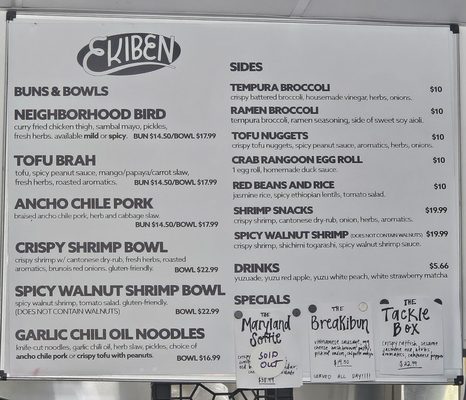 EKIBEN
BUNS & BOWLS
NEIGHBORHOOD BIRD
curry fried chicken thigh, sambal mayo, pickles,
fresh herbs. available mild or spicy. BUN $14.50/BOWL $17.99
TOFU BRAH
tofu, spicy peanut sauce, mango/papaya/carrot slaw,
fresh herbs, roasted aromatics. BUN $14.50/BOWL $17.99
ANCHO CHILE PORK
braised ancho chile pork, herb and cabbage slaw.
BUN $14.50/BOWL $17.99
CRISPY SHRIMP BOWL
crispy shrimp w/ cantonese dry-rub, fresh herbs, roasted
aromatics, brunois red onions. gluten-friendly.
BOWL $22.99
SPICY WALNUT SHRIMP BOWL
spicy walnut shrimp, tomato salad. gluten-friendly.
(DOES NOT CONTAIN WALNUTS) BOWL $22.99
GARLIC CHILI OIL NOODLES
knife-cut noodles, garlic chili oil, herb slaw, pickles, choice of
ancho chile pork or crispy tofu with peanuts. BOWL $16.99
SIDES
TEMPURA BROCCOLI $10
crispy battered broccoli, housemade vinegar, herbs, onions.
RAMEN BROCCOLI $10
tempura broccoli, ramen seasoning, side of sweet soy aioli.
TOFU NUGGETS $10
crispy tofu nuggets, spicy peanut sauce, aromatics, herbs, onions.
CRAB RANGOON EGG ROLL $10
1 egg roll, homemade duck sauce.
RED BEANS AND RICE $10
jasmine rice, spicy ethiopian lentils, tomato salad.
SHRIMP SNACKS $19.99
crispy shrimp, cantonese dry-rub, onion, herbs, aromatics.
SPICY WALNUT SHRIMP (DOES NOT CONTAIN WALNUTS) $19.99
crispy shrimp, shichimi togarashi, spicy walnut shrimp sauce.
DRINKS $5.66
yuzuade, yuzu red apple, yuzu white peach, white strawberry matcha
SPECIALS
THE
Maryland
Softie
crispy
SOLD
OUT
THE
BreaKibun
SERVED ALL DAY!!!!
THE
Tackle
Box
$22.99